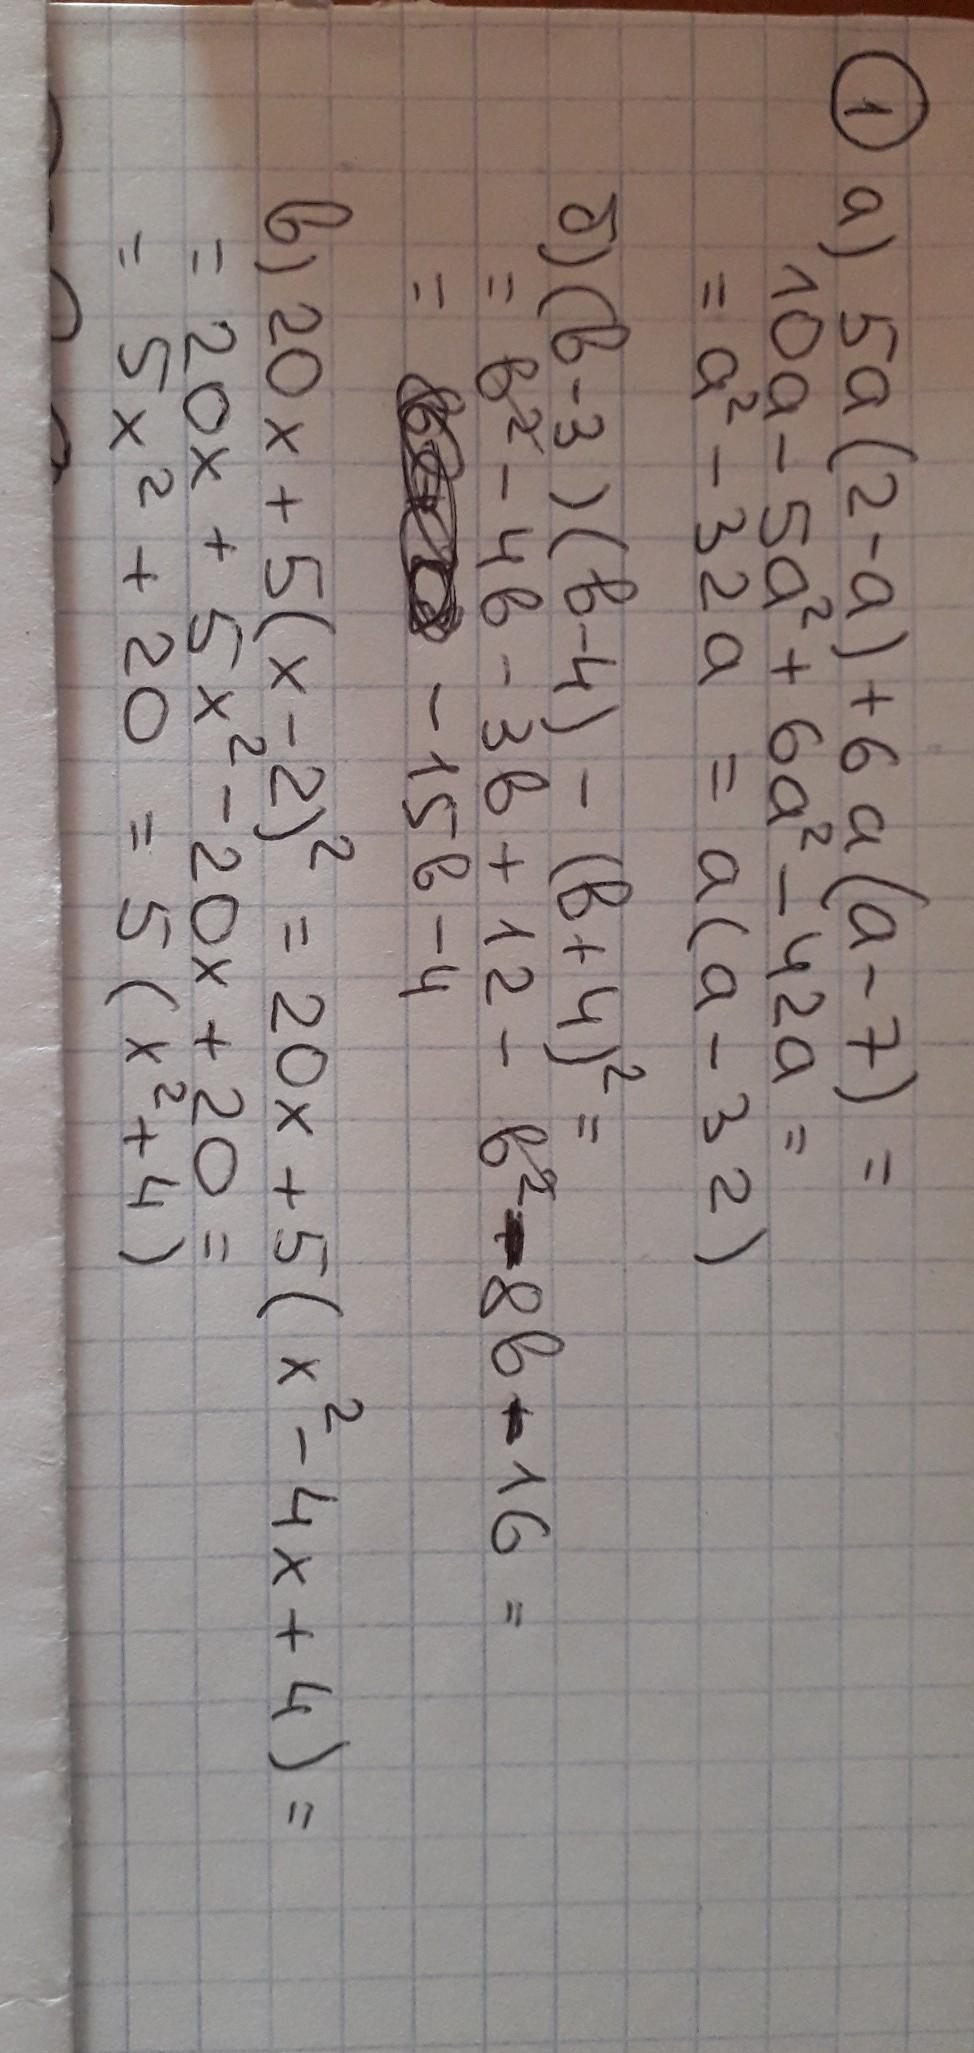 ① а) 5a(2-a)+6a(a-7) =
10a-5a²+6a²-42a =
= a²-32a = a(a-32)
б) (b-3)(b-4) - (b+4)² =
= b²-4b-3b+12- b²-8b-16 =
= -15b-4
в) 20x+5(x-2)² = 20x+5(x²-4x+4) =
= 20x+5x²-20x+20 =
= 5x²+20 = 5(x²+4)